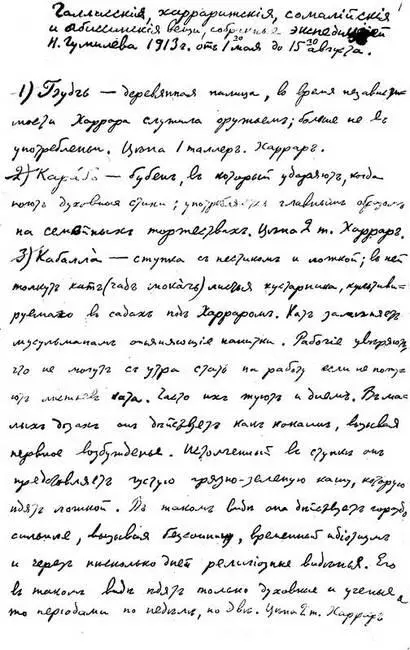 Галласскія, харраритскія, сомалійскія
и абиссинскія вещи, собранныя экспедиціей
Н. Гумилева 1913 г. отъ 1го мая до 15го августа.
1) Будъ — деревянная палица, во время независи-
мости Харрара служила оружіемъ; больше не въ
употребленіи. Цѣна 1 таллеръ. Харраръ.
2) — бубенъ, въ который ударяютъ, когда
поютъ духовные стихи; употребляютъ главнымъ образомъ
на семейныхъ торжествахъ. Цѣна 2 т. Харраръ.
3) Кабалла — ступка съ пестикомъ и ложкой; въ ней
толкутъ катъ (чадъ листья кустарника, культиви-
руемаго въ садахъ подъ Харраромъ. Катъ замѣняетъ
мусульманамъ опьяняющіе напитки. Рабочіе увѣряютъ,
что не могутъ съ утра стать на работу если не пожу-
ютъ листьевъ ката. Часто ихъ жуютъ и днемъ. Въ ма-
лыхъ дозахъ онъ дѣйствуетъ какъ кокаинъ, вызывая
нервное возбужденье. Истолченный въ ступкѣ онъ
представляетъ густую грязно-зеленую кашу, которую
ѣдятъ ложкой. Въ такомъ видѣ она дѣйствуетъ гораздо
сильнѣе, вызывая безсонницу, временный идіотизмъ
и черезъ нѣсколько дней религіозныя видѣнья. Его
въ такомъ видѣ ѣдятъ только духовные и ученые и
то періодами по недѣлѣ, по двѣ. Цѣна 2 т. Харраръ